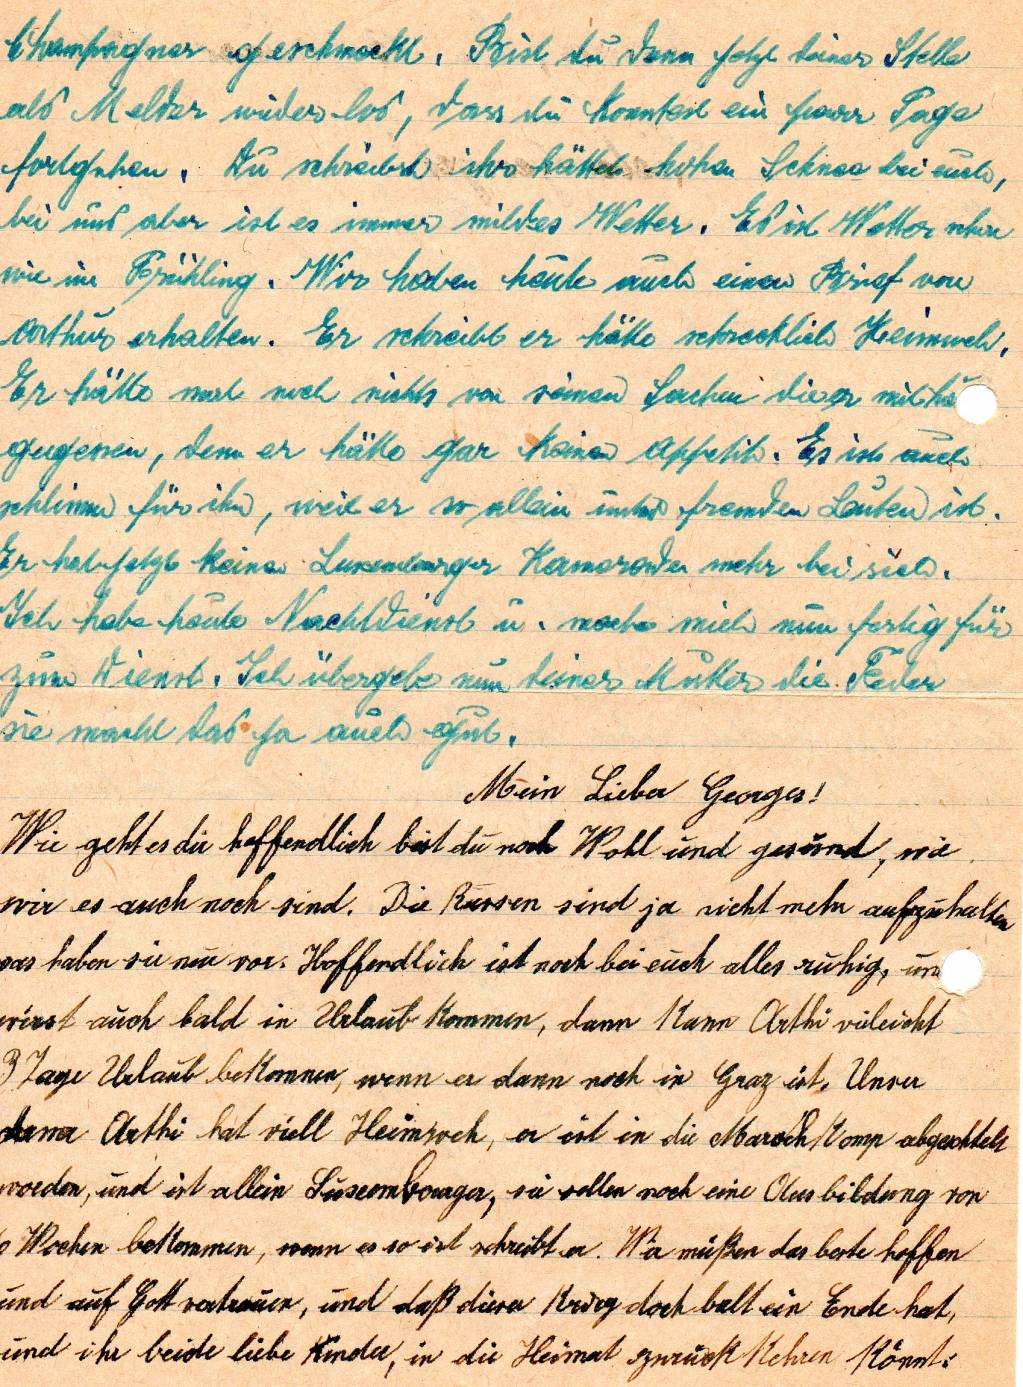 Champagner geschmeckt. Bist du denn jetzt deiner Stelle
als Melder wieder los, dass du konntest ein paar Tage
fortgehen. Du schreibst ihr hättet hohen Schnee bei euch,
bei uns aber ist es immer mildes Wetter. Es ist Wetter schon
wie im Frühling. Wir haben heute auch einen Brief von
Arthur erhalten. Er schreibt er hätte schrecklich Heimweh.
Er hätte noch nichts von seinen Sachen die er mit
gegessen, denn er hätte gar keinen Appetit. Es ist auch
schlimm für ihn, weil er so allein unter fremden Leuten ist.
Er hat jetzt keine Luxemburger Kameraden mehr bei sich.
Ich habe heute Nachtdienst u. mache mich nun fertig für
zum Dienst. Ich übergebe nun deiner Mutter die Feder
sie macht das ja auch gut.
Mein Lieber Georges!
Wie geht es dir hoffendlich bist du noch Wohl und gesund, wie
wir es auch noch sind. Die Russen sind ja nicht mehr aufzuhalten
was haben sie nur vor. Hoffendlich ist noch bei euch alles ruhig, und
wirst auch bald in Urlaub kommen, dann kann Arthi vieleicht
3 Tage Urlaub bekommen, wenn er dann noch in Graz ist. Unser
Arthi hat viell Heimweh, er ist in die Marsch Komp abgeschtelt
worden, und ist allein Luxembourger, sie sollen noch eine Ausbildung von
Wochen bekommen, wenn es so ist schreibt er. Wir müßen das beste hoffen
und auf Gott vertrauen, und daß dieser Krieg doch balt ein Ende hat,
und ihr beide liebe Kinder, in die Heimat zurück kehren könnt.